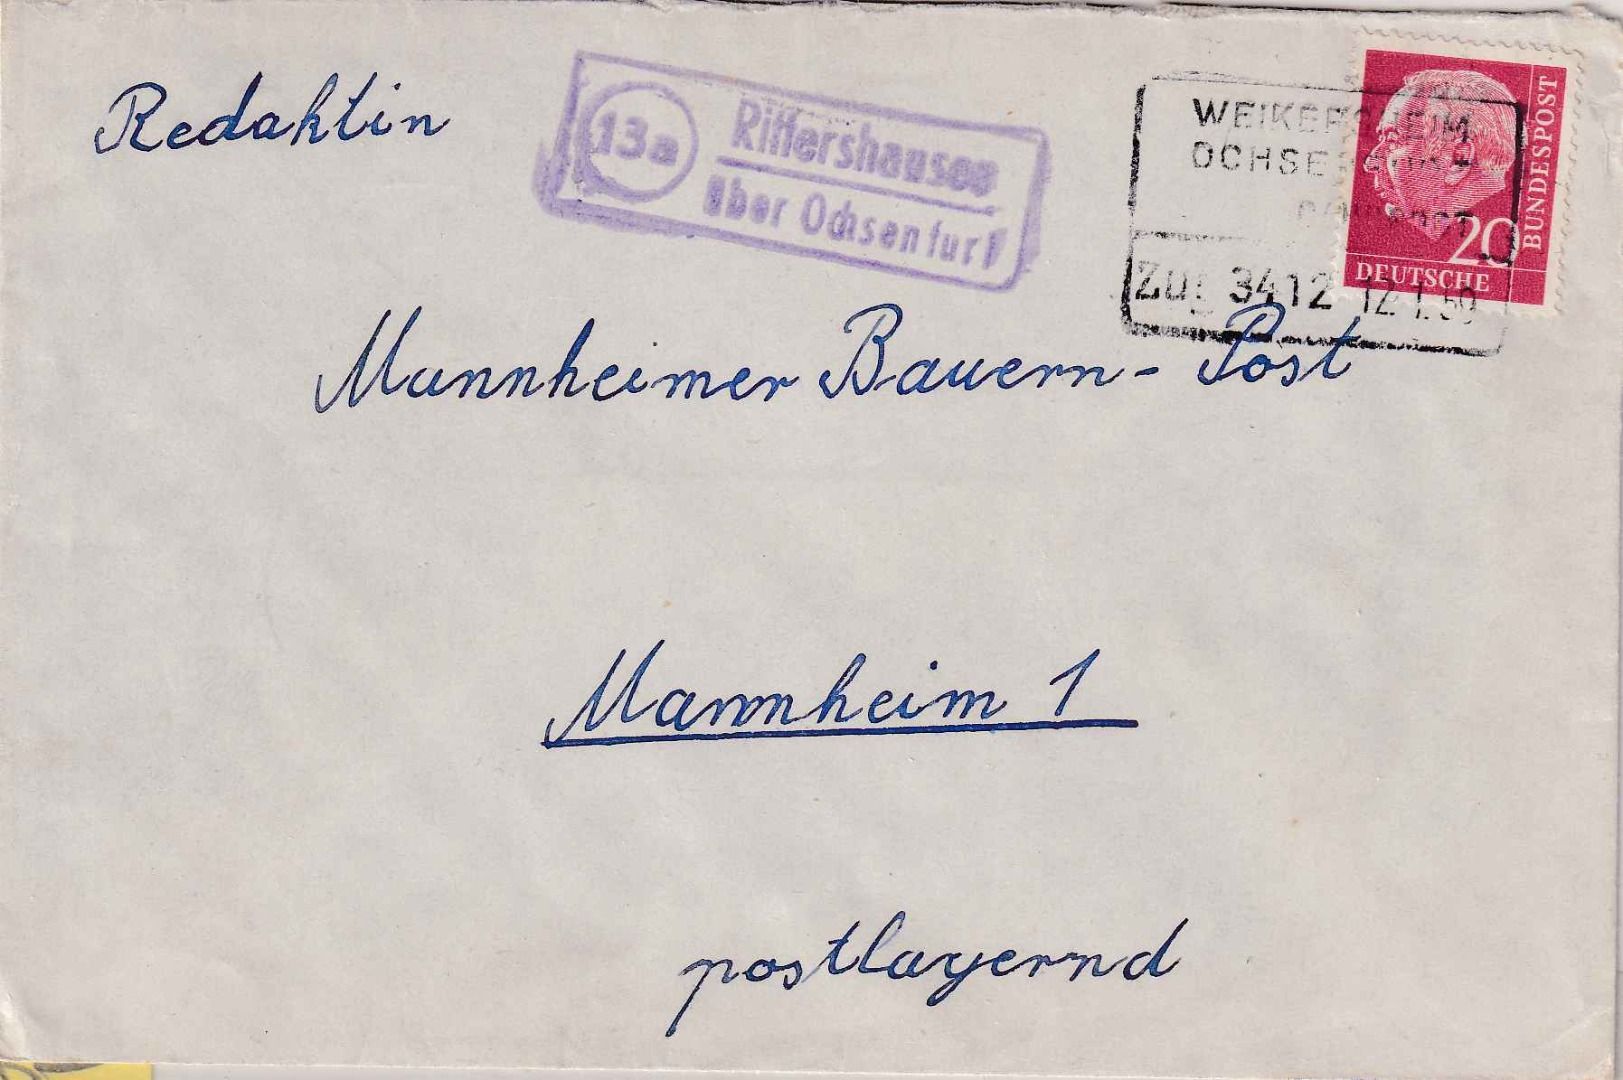 Redaktin
13a
Rittershausen
über Ochsenfurt
WEIKERSHEIM
OCHSENFURT
BAHNPOST
Zug 3412 12.1.
20
DEUTSCHE
BUNDESPOST
Mannheimer Bauern-Post
Mannheim 1
postlagernd